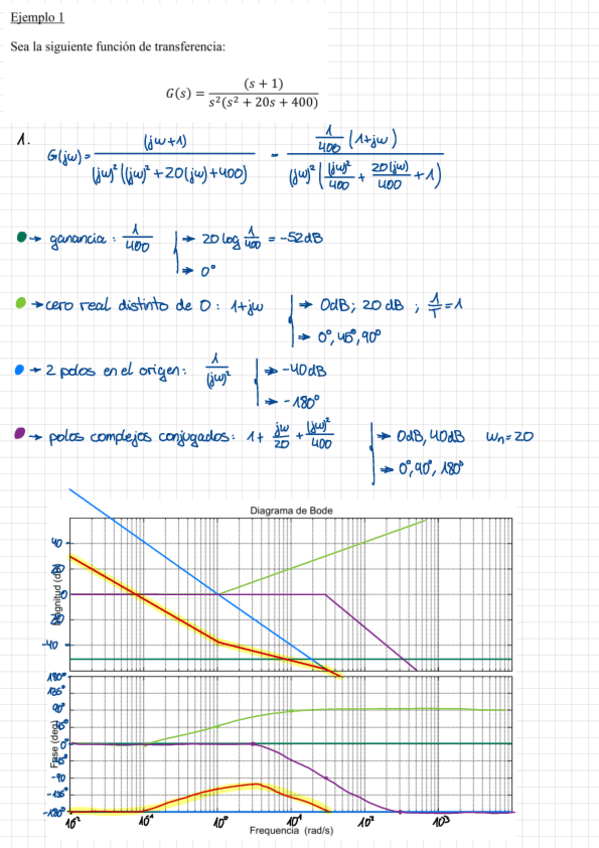 Ejemplo 1
Sea la siguiente función de transferencia:
G(s) = (s + 1) / s²(s² + 20s + 400)
1.
G(jω) = (jω+1) / (jω)²((jω)² + 20(jω)+400) = 1/400 (1+jω) / (jω)²((jω)²/400 + 20(jω)/400 + 1)
→ ganancia : 1/400 → 20 log 1/400 = -52dB
→ 0°
→ cero real distinto de 0 : 1+jω → 0dB; 20 dB ; 1/T = 1
→ 0°, 45°, 90°
→ 2 polos en el origen: 1/(jω)² → -40dB
→ -180°
→ polos complejos conjugados: 1+ jω/20 + (jω)²/400 → 0dB, 40dB ωn=20
→ 0°, 90°, 180°
Diagrama de Bode
Magnitud (dB)
40
20
0
20
-40
Fase (deg)
180°
135°
90°
45°
0°
-45°
-90
-135°
-180°
10⁻² 10⁻¹ 10⁰ 10¹ 10² 10³
Frequencia (rad/s)